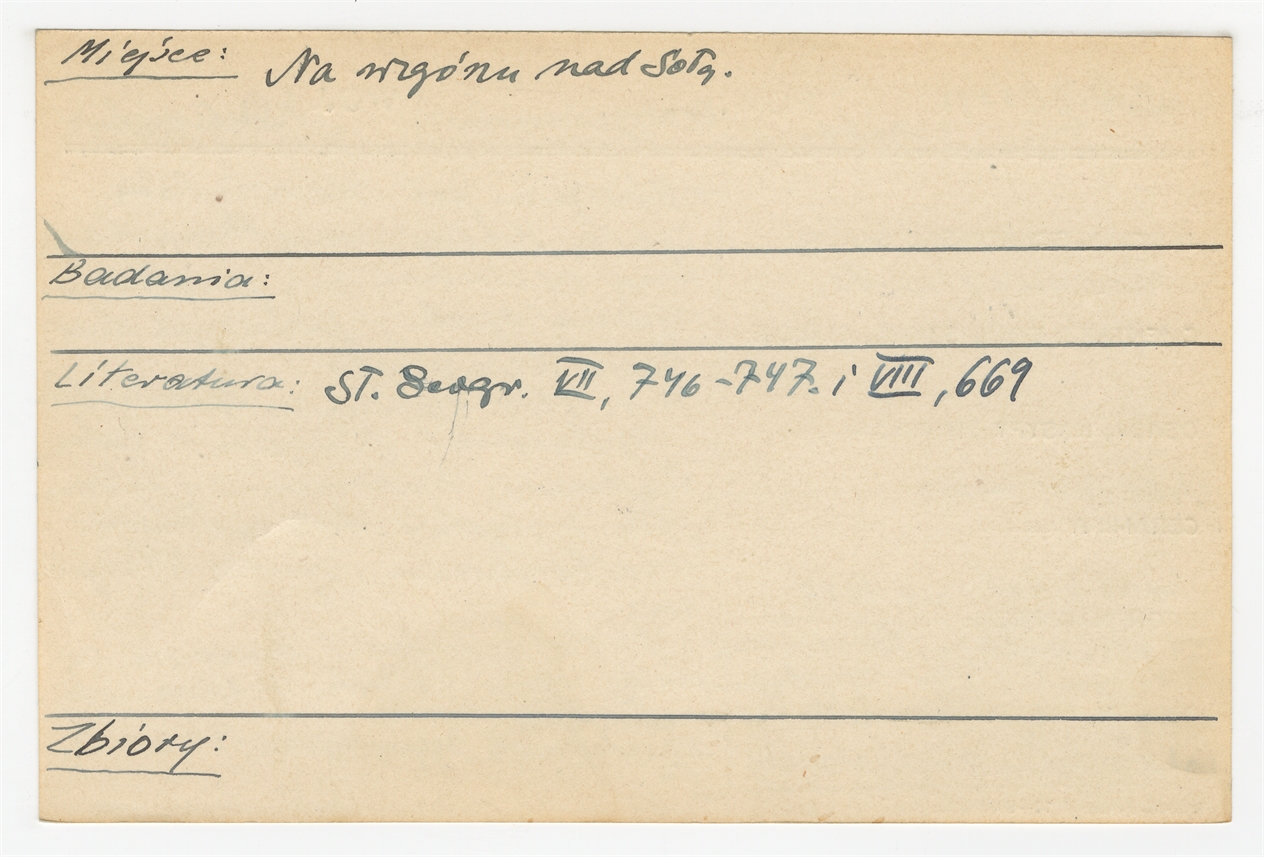 Miejsce: Na wzgórzu nad Sołą.
Badania:
Literatura: Sł. Geogr. VII, 746-747. i VIII, 669
Zbiory: